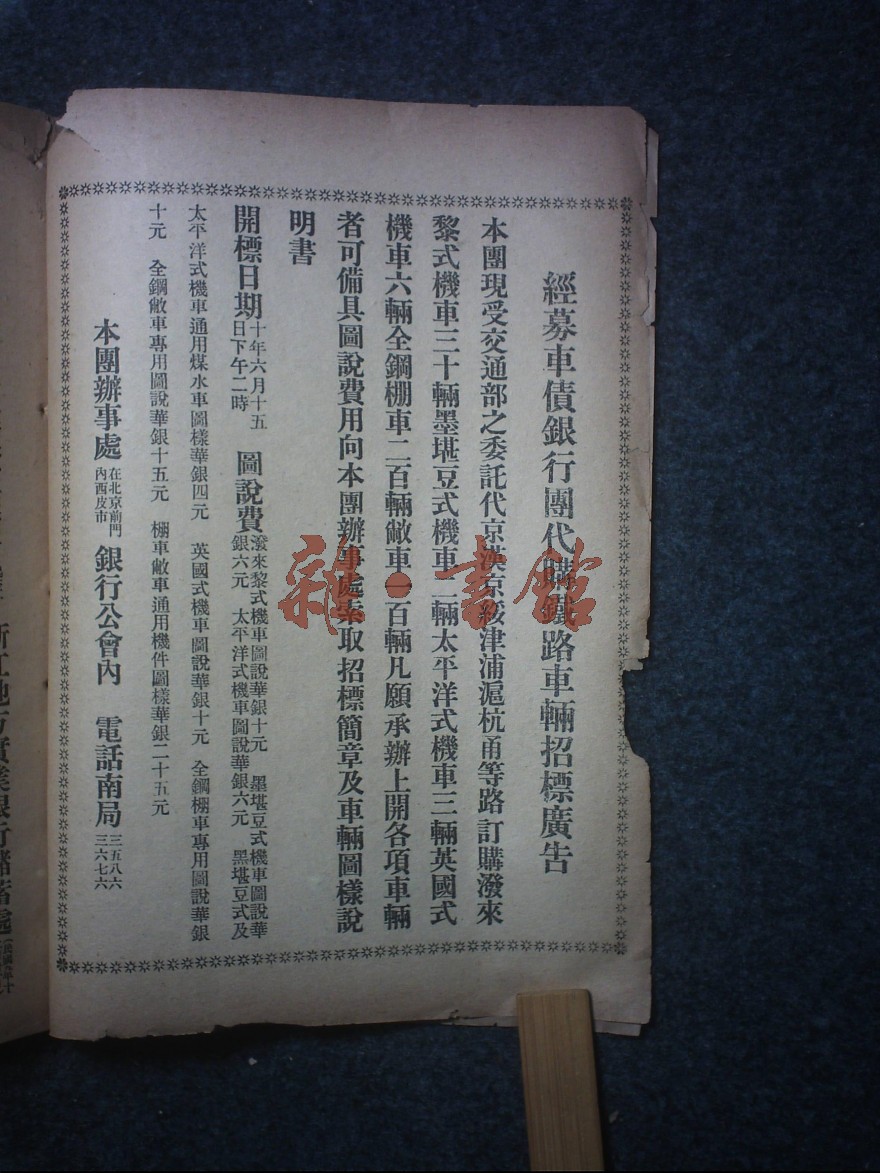 經募車債銀行團代購鐵路車輛招標廣告
本團現受交通部之委託代京漢京綏津浦滬杭甬等路訂購潑來
黎式機車三十輛墨堪豆式機車二輛太平洋式機車三輛英國式
機車六輛全鋼棚車二百輛敞車一百輛凡願承辦上開各項車輛
者可備具圖說費用向本團辦事處索取招標簡章及車輛圖樣說
明書
開標日期 十年六月十五日下午二時 圖說費 潑來黎式機車圖說華銀十元 墨堪豆式機車圖說華銀六元 太平洋式機車圖說華銀六元 黑堪豆式及
太平洋式機車通用煤水車圖樣華銀四元 英國式機車圖說華銀十元 全鋼棚車專用圖說華銀
十元 全鋼敞車專用圖說華銀十五元 棚車敞車通用機件圖樣華銀二十五元
本團辦事處 在北京前門內西皮市 銀行公會內 電話南局 三五八六 三六七六
雜·書館